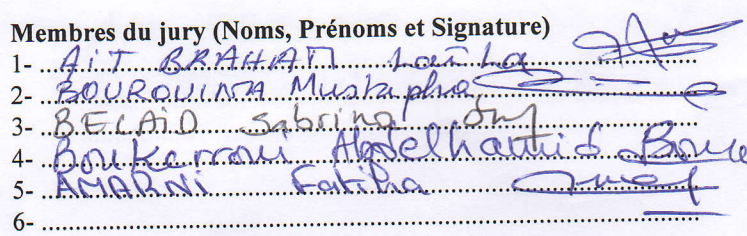 Membres du jury (Noms, Prénoms et Signature)
1- AiT BRAHAM Laïla
2- BOUROUINA Mustapha
3- BELAID Sabrina
4- Boukerroui Abdelhamid
5- AMARNI Fatiha
6-